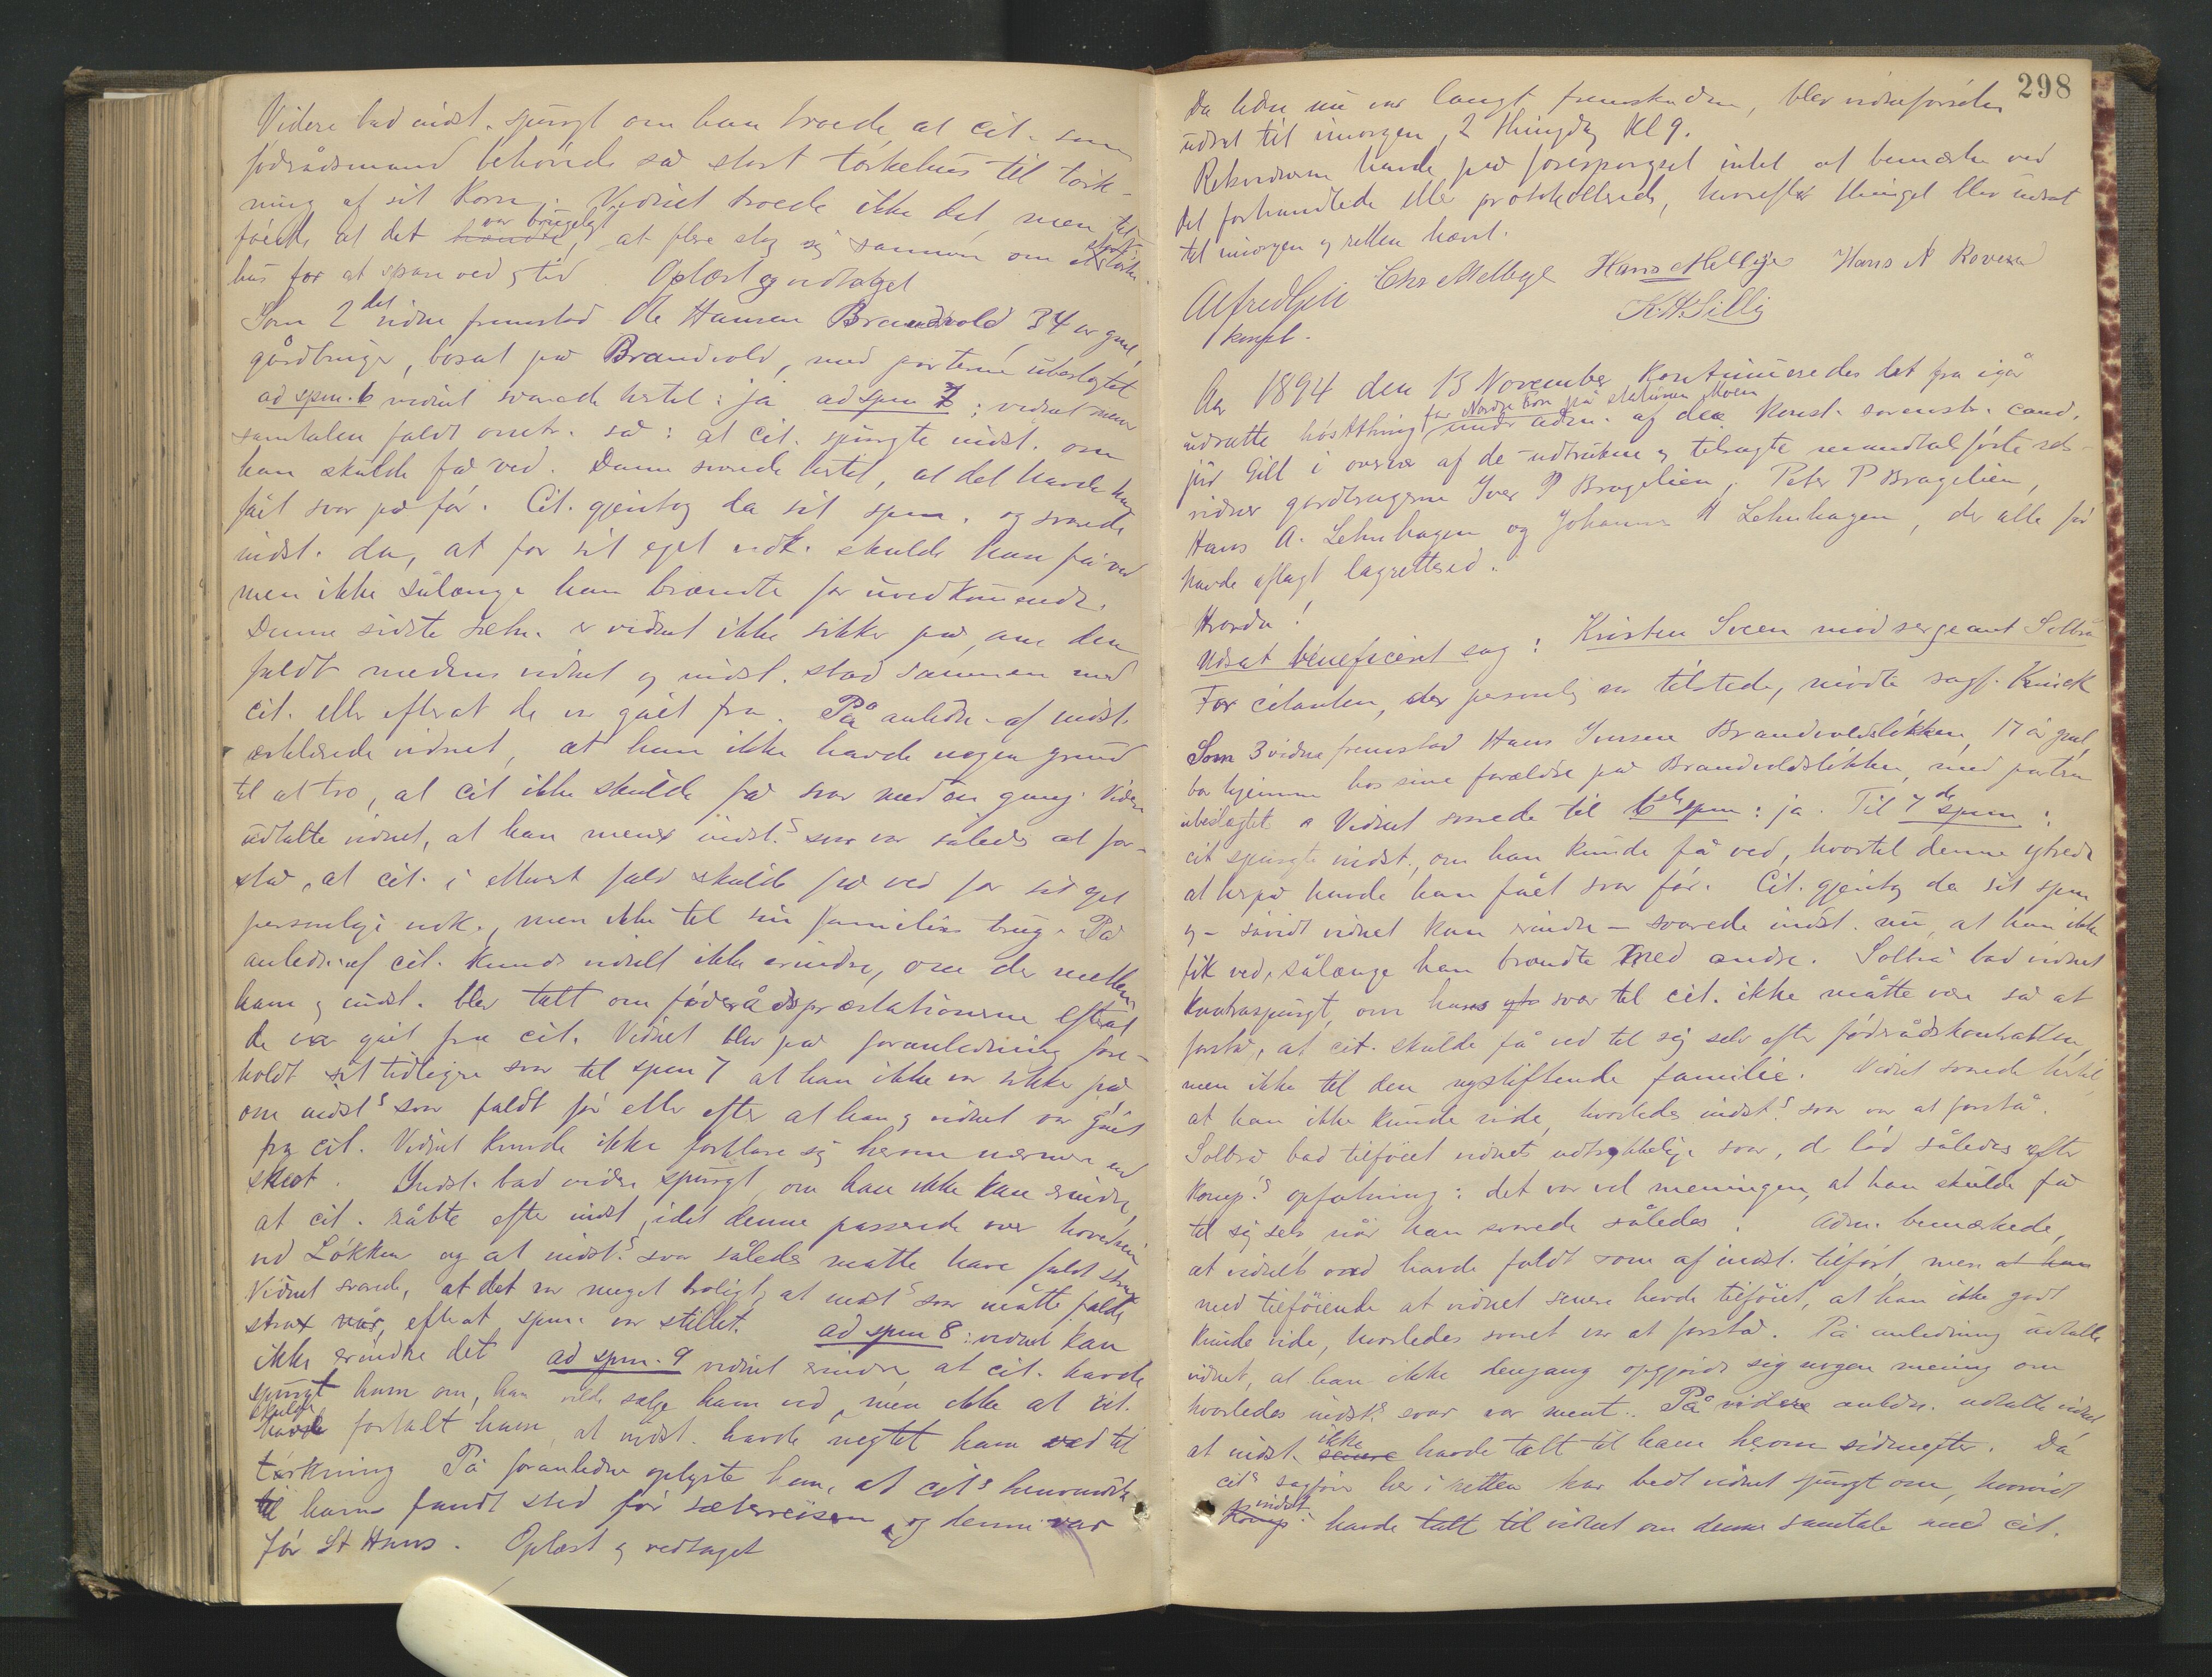 Videre bad indst. spurgt om han troede, at cit. som
föderådsmand behövede så stort törkehus til törk-
ning af sit Korn. Vidnet troede ikke det, men til-
föiede, at det hændte, var brugeligt at flere slog sig sammen om et törke-
hus for at spare ved og tid. Oplæst og vedtaget
Som 2det vidne fremstod Ole Hansen Brandvold, 34 år gml,
gårdbruger, bosat på Brandvold, med parterne ubeslægtet
ad spm. 6 vidnet svarede hertil: ja ad spm 7: vidnet mener
samtalen faldt omtr. så: at cit. spurgte indst. om
han skulde få ved. Denne svarede hertil, at det havde han
fåt svar på för. Cit. gjentog da sit spm. og svarede
indst. da, at for sit eget vedk. skulde han få ved
men ikke sålænge han brændte for uvedkommende.
Denne sidste sætn. er vidnet ikke sikker på, om den
faldt medens vidnet og indst. stod sammen med
cit. eller efterat de var gåt fra. På anledn. af indst.
erklærede vidnet, at han ikke havde nogen grund
til at tro, at cit ikke skulde få svar med en gang. Videre
udtalte vidnet, at han mener indst.s svar var således at for-
stå, at cit. i ethvert fald skulde få ved for sit eget
personlige vedk., men ikke til sin families brug. På
anledn. af cit. kunde vidnet ikke erindre, om der mellem
ham og indst. blev talt om föderådspræstationerne efterat
de var gåt fra cit. Vidnet blev på foranledning fore-
holdt sit tidligere svar til spm 7 at han ikke var sikker på
om indsts svar faldt för eller efter at han og vidnet var gåt
fra cit. Vidnet kunde ikke forklare sig herom nærmere end
skeet. Indst. bad videre spurgt, om han ikke kan erindre,
at cit. råbte efter indst, idet denne passerede over hovedveien
ved Lökken og at indst.s svar således måtte have faldt strax
Vidnet svarede, at det var meget troligt, at indsts svar måtte falde
strax når, efterat spm. var stillet. ad spm 8: vidnet kan
ikke erindre det ad spm. 9 vidnet erindrer, at cit. havde
spurgt ham om, han vilde sælge ham ved, men ikke at cit.
havde skulde fortalt ham, at indst. havde negtet ham ved til
törkning. På foranledn. oplyste han, at cits henvendelse
til ham fandt sted för sæterreisen, og denne var
för St Hans. Oplæst og vedtaget
298
Da tiden nu var langt fremskreden, blev vidneförselen
udsat til imorgen, 2 thingdag Kl 9.
Rekvirenterne havde på forespörgsel intet at bemærke ved
det forhandlede eller protokollerede, hvorefter thinget blev udsat
til imorgen og retten hævet.
Alfred Gill Chr Mellbye Hans Mellbye Hans A
konst. K. H. Lillij
Aar 1894 den 13 November kontinueredes det fra igår
udsatte höstthing for Nordre Fron på stationen Moen under adm. af den konst. sorenskr. cand.
jur Gill i overvær af de udtrukne og tilsagte mandtalförte rets-
vidner gårdbrugerne Iver P Bragelien, Peter P Bragelien,
Hans A. Lehnhagen og Johannes H Lehnhagen, der alle för
havde aflagt lagrettesed.
Hvorda!
Udsat beneficeret sag: Kristen Sveen mod sergeant Solbrå
For citanten, der personlig var tilstede, mödte sagf. Kruck
Som 3 vidne fremstod Hans Iversen Brandvoldslökken, 17 år gml,
bor hjemme hos sine forældre på Brandvoldslökken, med parterne
ubeslægtet. Vidnet svarede til 6te spm: ja. Til 7de spm:
cit spurgte indst., om han kunde få ved, hvortil denne ytrede
at herpå havde han fået svar för. Cit. gjentog da sit spm
og – såvidt vidnet kan erindre – svarede indst. nu, at han ikke
fik ved, sålænge han brændte med andre. Solbrå bad vidnet
kontraspurgt, om hans svar til cit. ikke måtte være så at
forstå, at cit. skulde få ved til sig selv efter föderådskontrakten,
men ikke til den nystiftende familie. Vidnet svarede hertil,
at han ikke kunde vide, hvorledes indst.s svar var at forstå.
Solbrå bad tilföiet vidnets udtrykkelige svar, der löd således efter
komp.s opfatning: det var vel meningen, at han skulde få
til sig selv når han svarede således. Adm. bemærkede,
at vidnets ord havde faldt som af indst. tilfört, men at han
med tilföiende at vidnet senere havde tilföiet, at han ikke godt
kunde vide, hvorledes svaret var at forstå. På anledning udtalte
vidnet, at han ikke dengang opgjorde sig nogen mening om
hvorledes indsts svar var ment. På videre anledn. udtalte vidnet
at indst. senere ikke havde talt til ham herom sidenefter. Da
cits sagförer her i retten har bedt vidnet spurgt om, hvorvidt
komp. indst. havde talt til vidnet om denne samtale med cit.